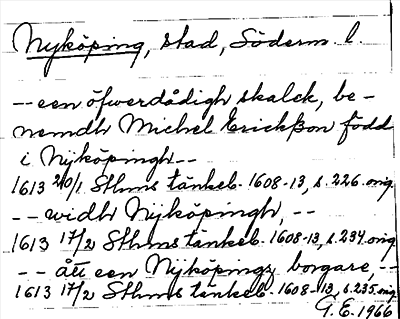 Nyköping, stad, Söderm. l.
-- een öfwerdådigh skalck, be-
nemdh Michel Erickßon född
i Nyköpingh --
1613 20/1 Sthms tänkeb. 1608-13, s. 226. orig
-- widh Nyköpingh, --
1613 17/2 Sthms tänkeb. 1608-13, s. 234. orig
-- ått een Nyköpings borgare, --
1613 17/2 Sthms tänkeb. 1608-13, s. 235. orig
G. E. 1966